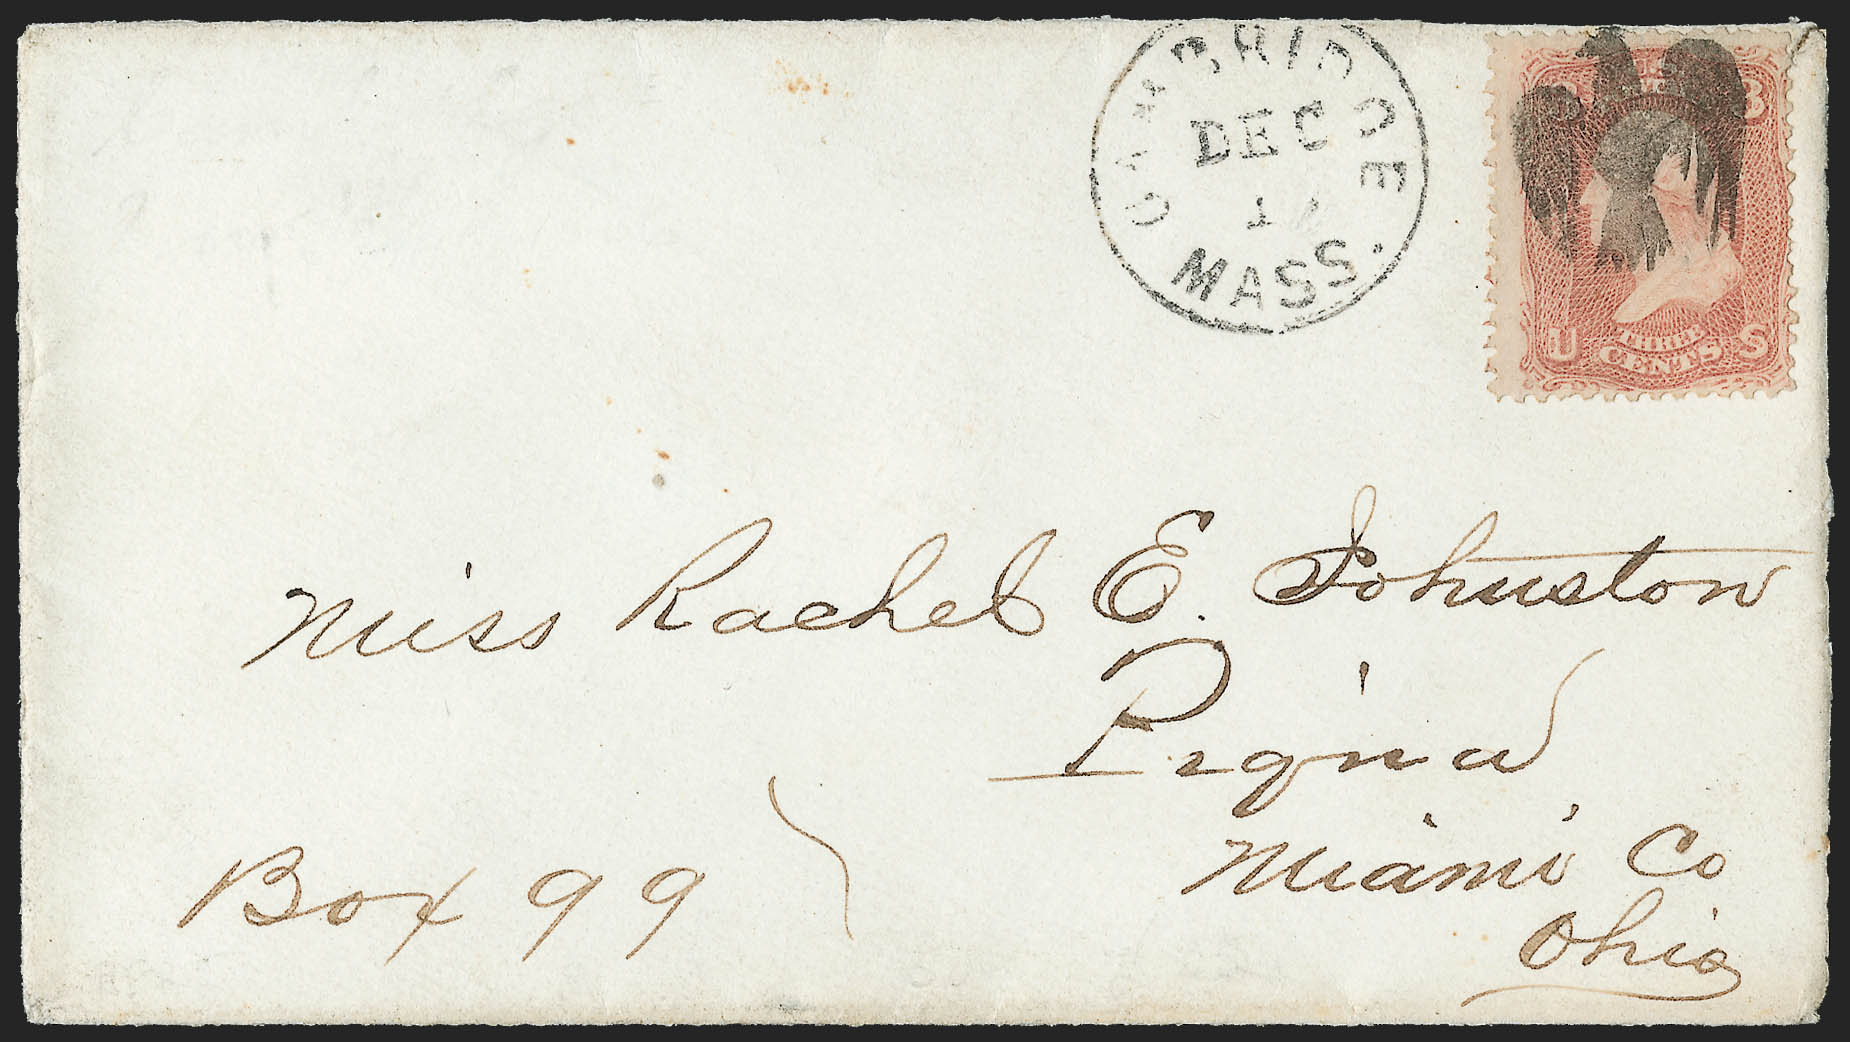 CAMBRIDGE
DEC
1
MASS.
3
U S
THREE
CENTS
Miss Rachel E. Johnston
Piqua
Miami Co
Ohio
Box 99